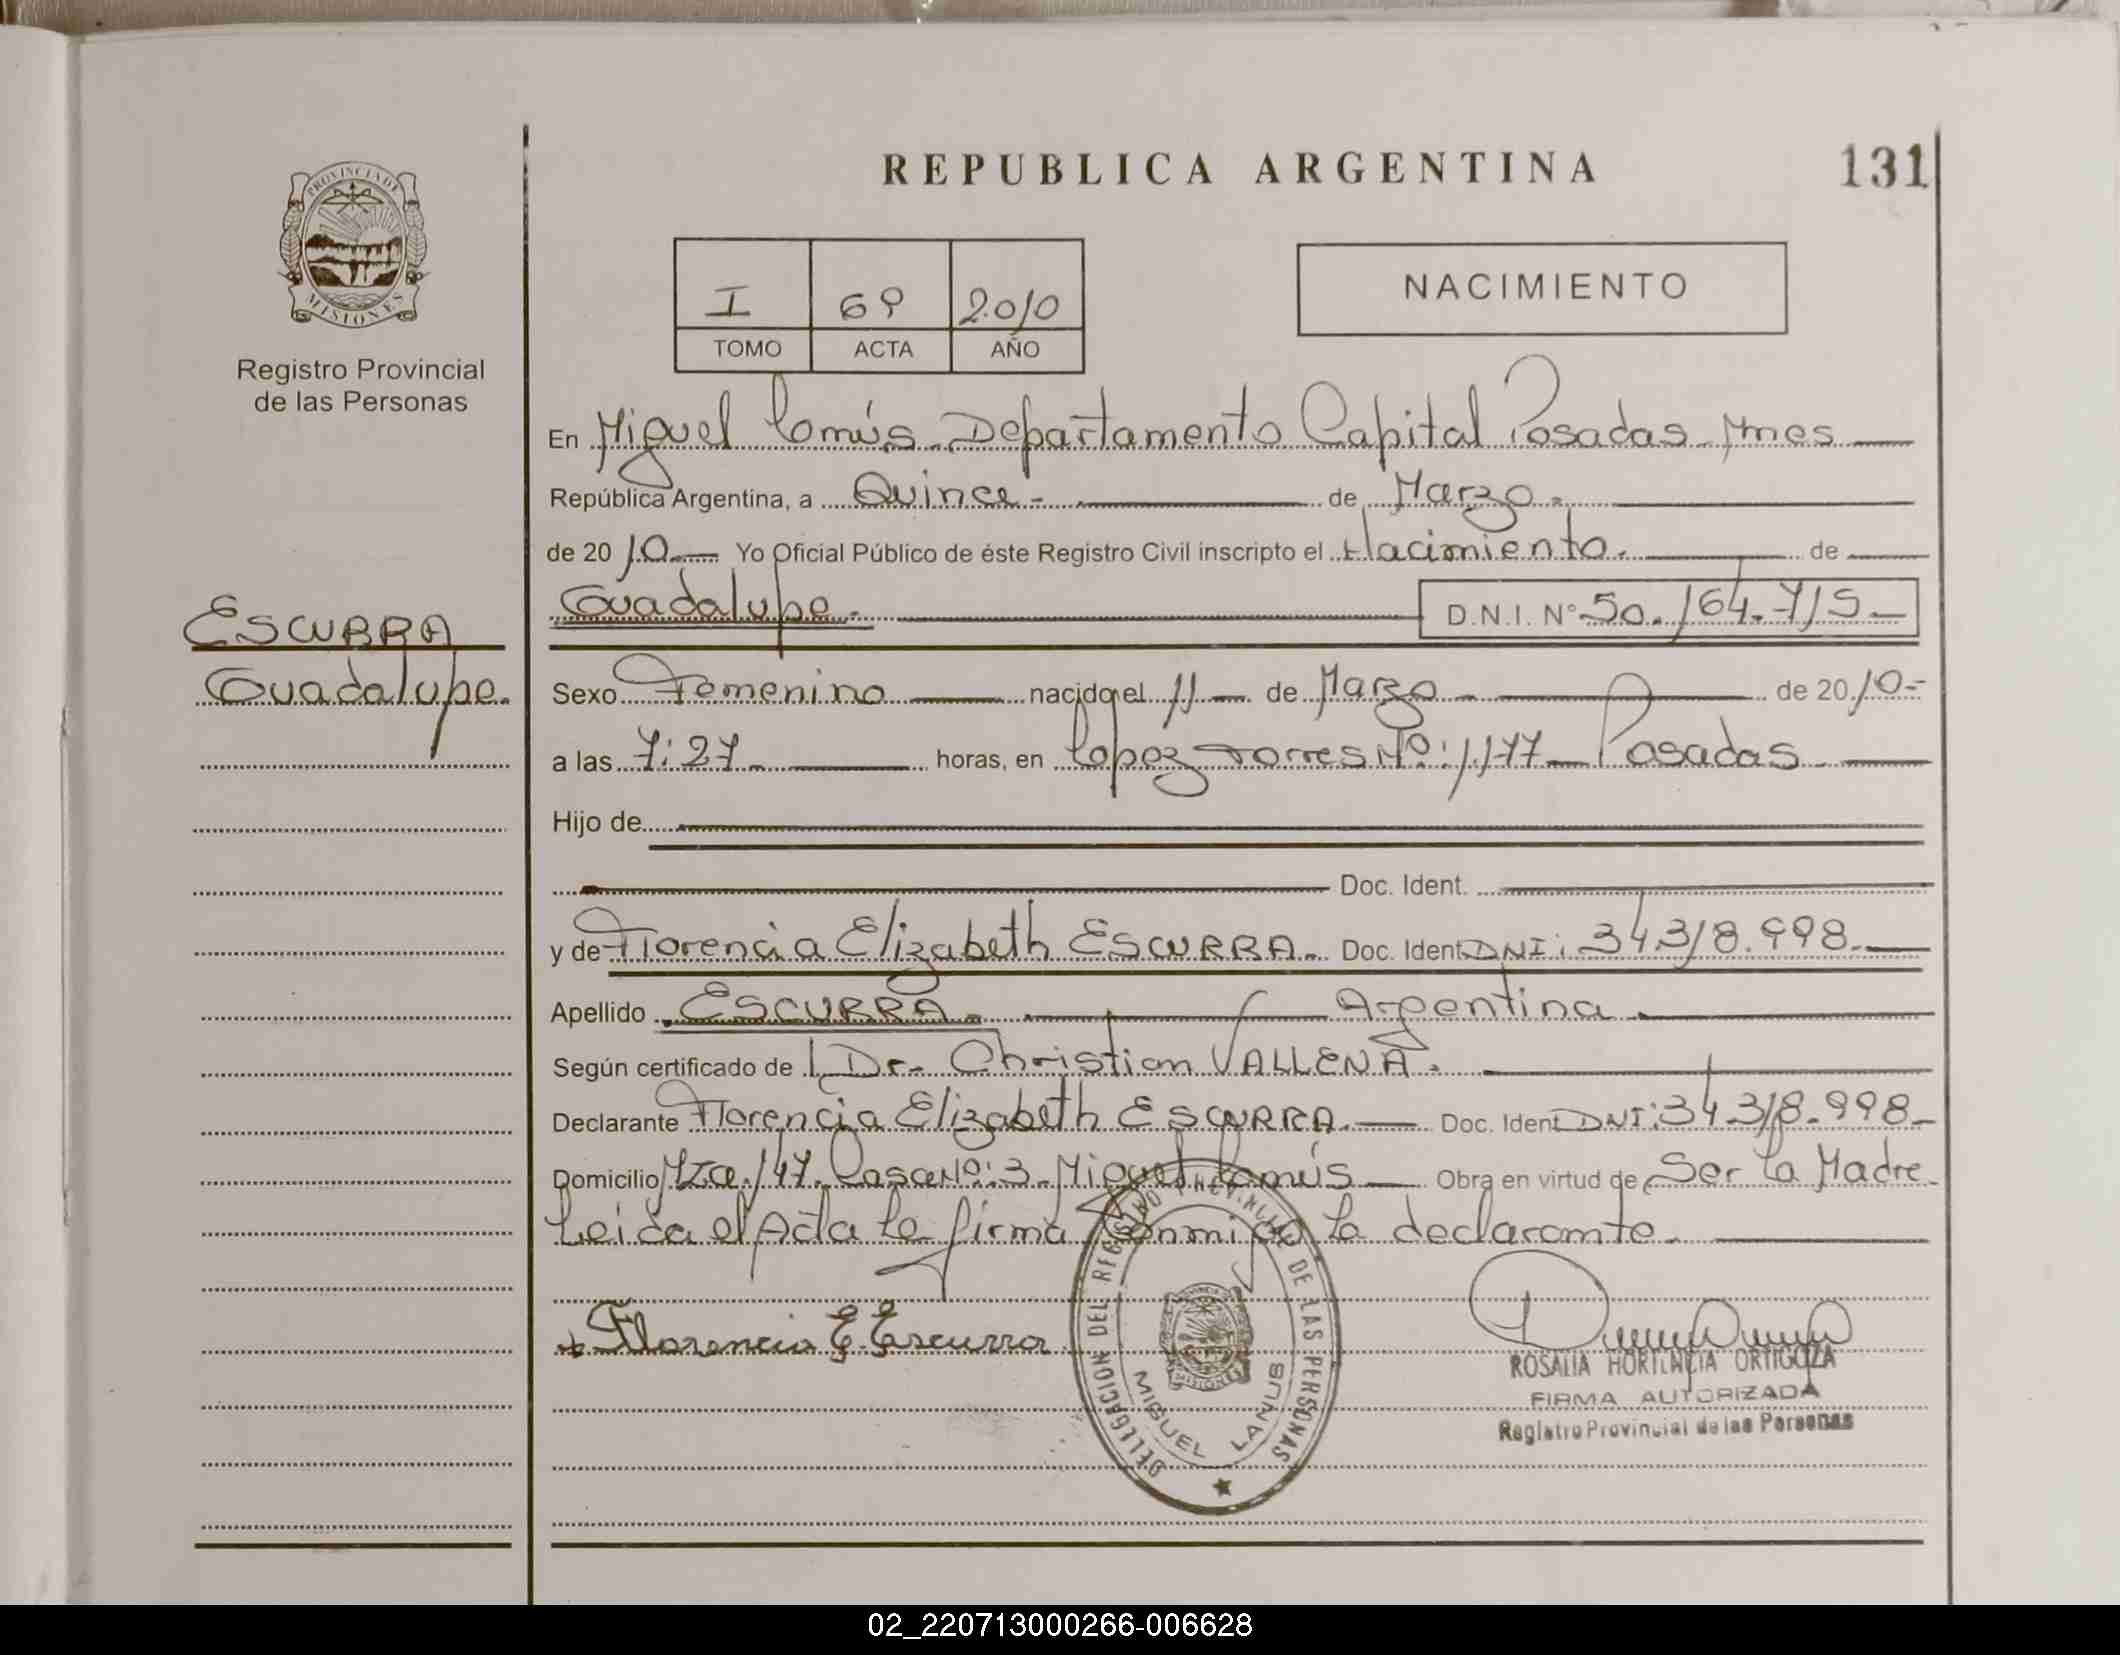 REPUBLICA ARGENTINA
131
PROVINCIA DE
MISIONES
Registro Provincial
de las Personas
I 69 2010
TOMO ACTA AÑO
NACIMIENTO
En Miguel Lanús. Departamento Capital Posadas Mnes
República Argentina, a Quince.- de Marzo.-
de 2010 Yo Oficial Público de éste Registro Civil inscripto el Nacimiento. de
Guadalupe.- D.N.I. Nº 50.164.715
ESCURRA
Guadalupe.
Sexo Femenino nacido el 11 de Marzo - de 2010-
a las 7:27 horas, en Lopez Torres Nº: 1.177 Posadas.
Hijo de
Doc. Ident.
y de Florencia Elizabeth ESCURRA. Doc. Ident. DNI: 34.318.998.
Apellido ESCURRA. Argentina.
Según certificado de Dr. Christian VALLENA.
Declarante Florencia Elizabeth ESCURRA. Doc. Ident. DNI: 34.318.998-
Domicilio Mza. 147. Casa Nº: 3. Miguel Lanús Obra en virtud de Ser la Madre.
Leida el Acta la firma Conmigo la declarante.
Florencia E. Escurra
DELEGACION DEL REGISTRO PROVINCIAL DE LAS PERSONAS
MISIONES
MIGUEL LANUS
ROSALIA HORTENCIA ORTIGOZA
FIRMA AUTORIZADA
Registro Provincial de las Personas
02_220713000266-006628